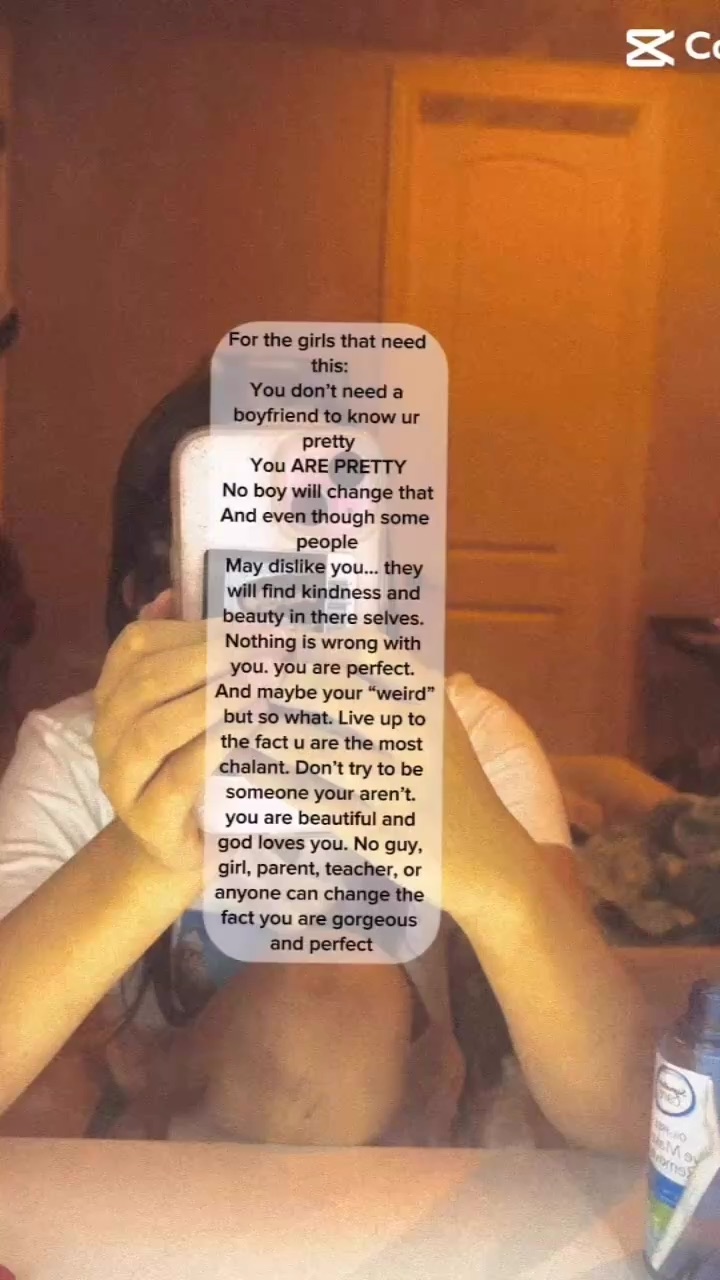 Cc
For the girls that need
this:
You don't need a
boyfriend to know ur
pretty
You ARE PRETTY
No boy will change that
And even though some
people
May dislike you... they
will find kindness and
beauty in there selves.
Nothing is wrong with
you. you are perfect.
And maybe your “weird”
but so what. Live up to
the fact u are the most
chalant. Don't try to be
someone your aren't.
you are beautiful and
god loves you. No guy,
girl, parent, teacher, or
anyone can change the
fact you are gorgeous
and perfect